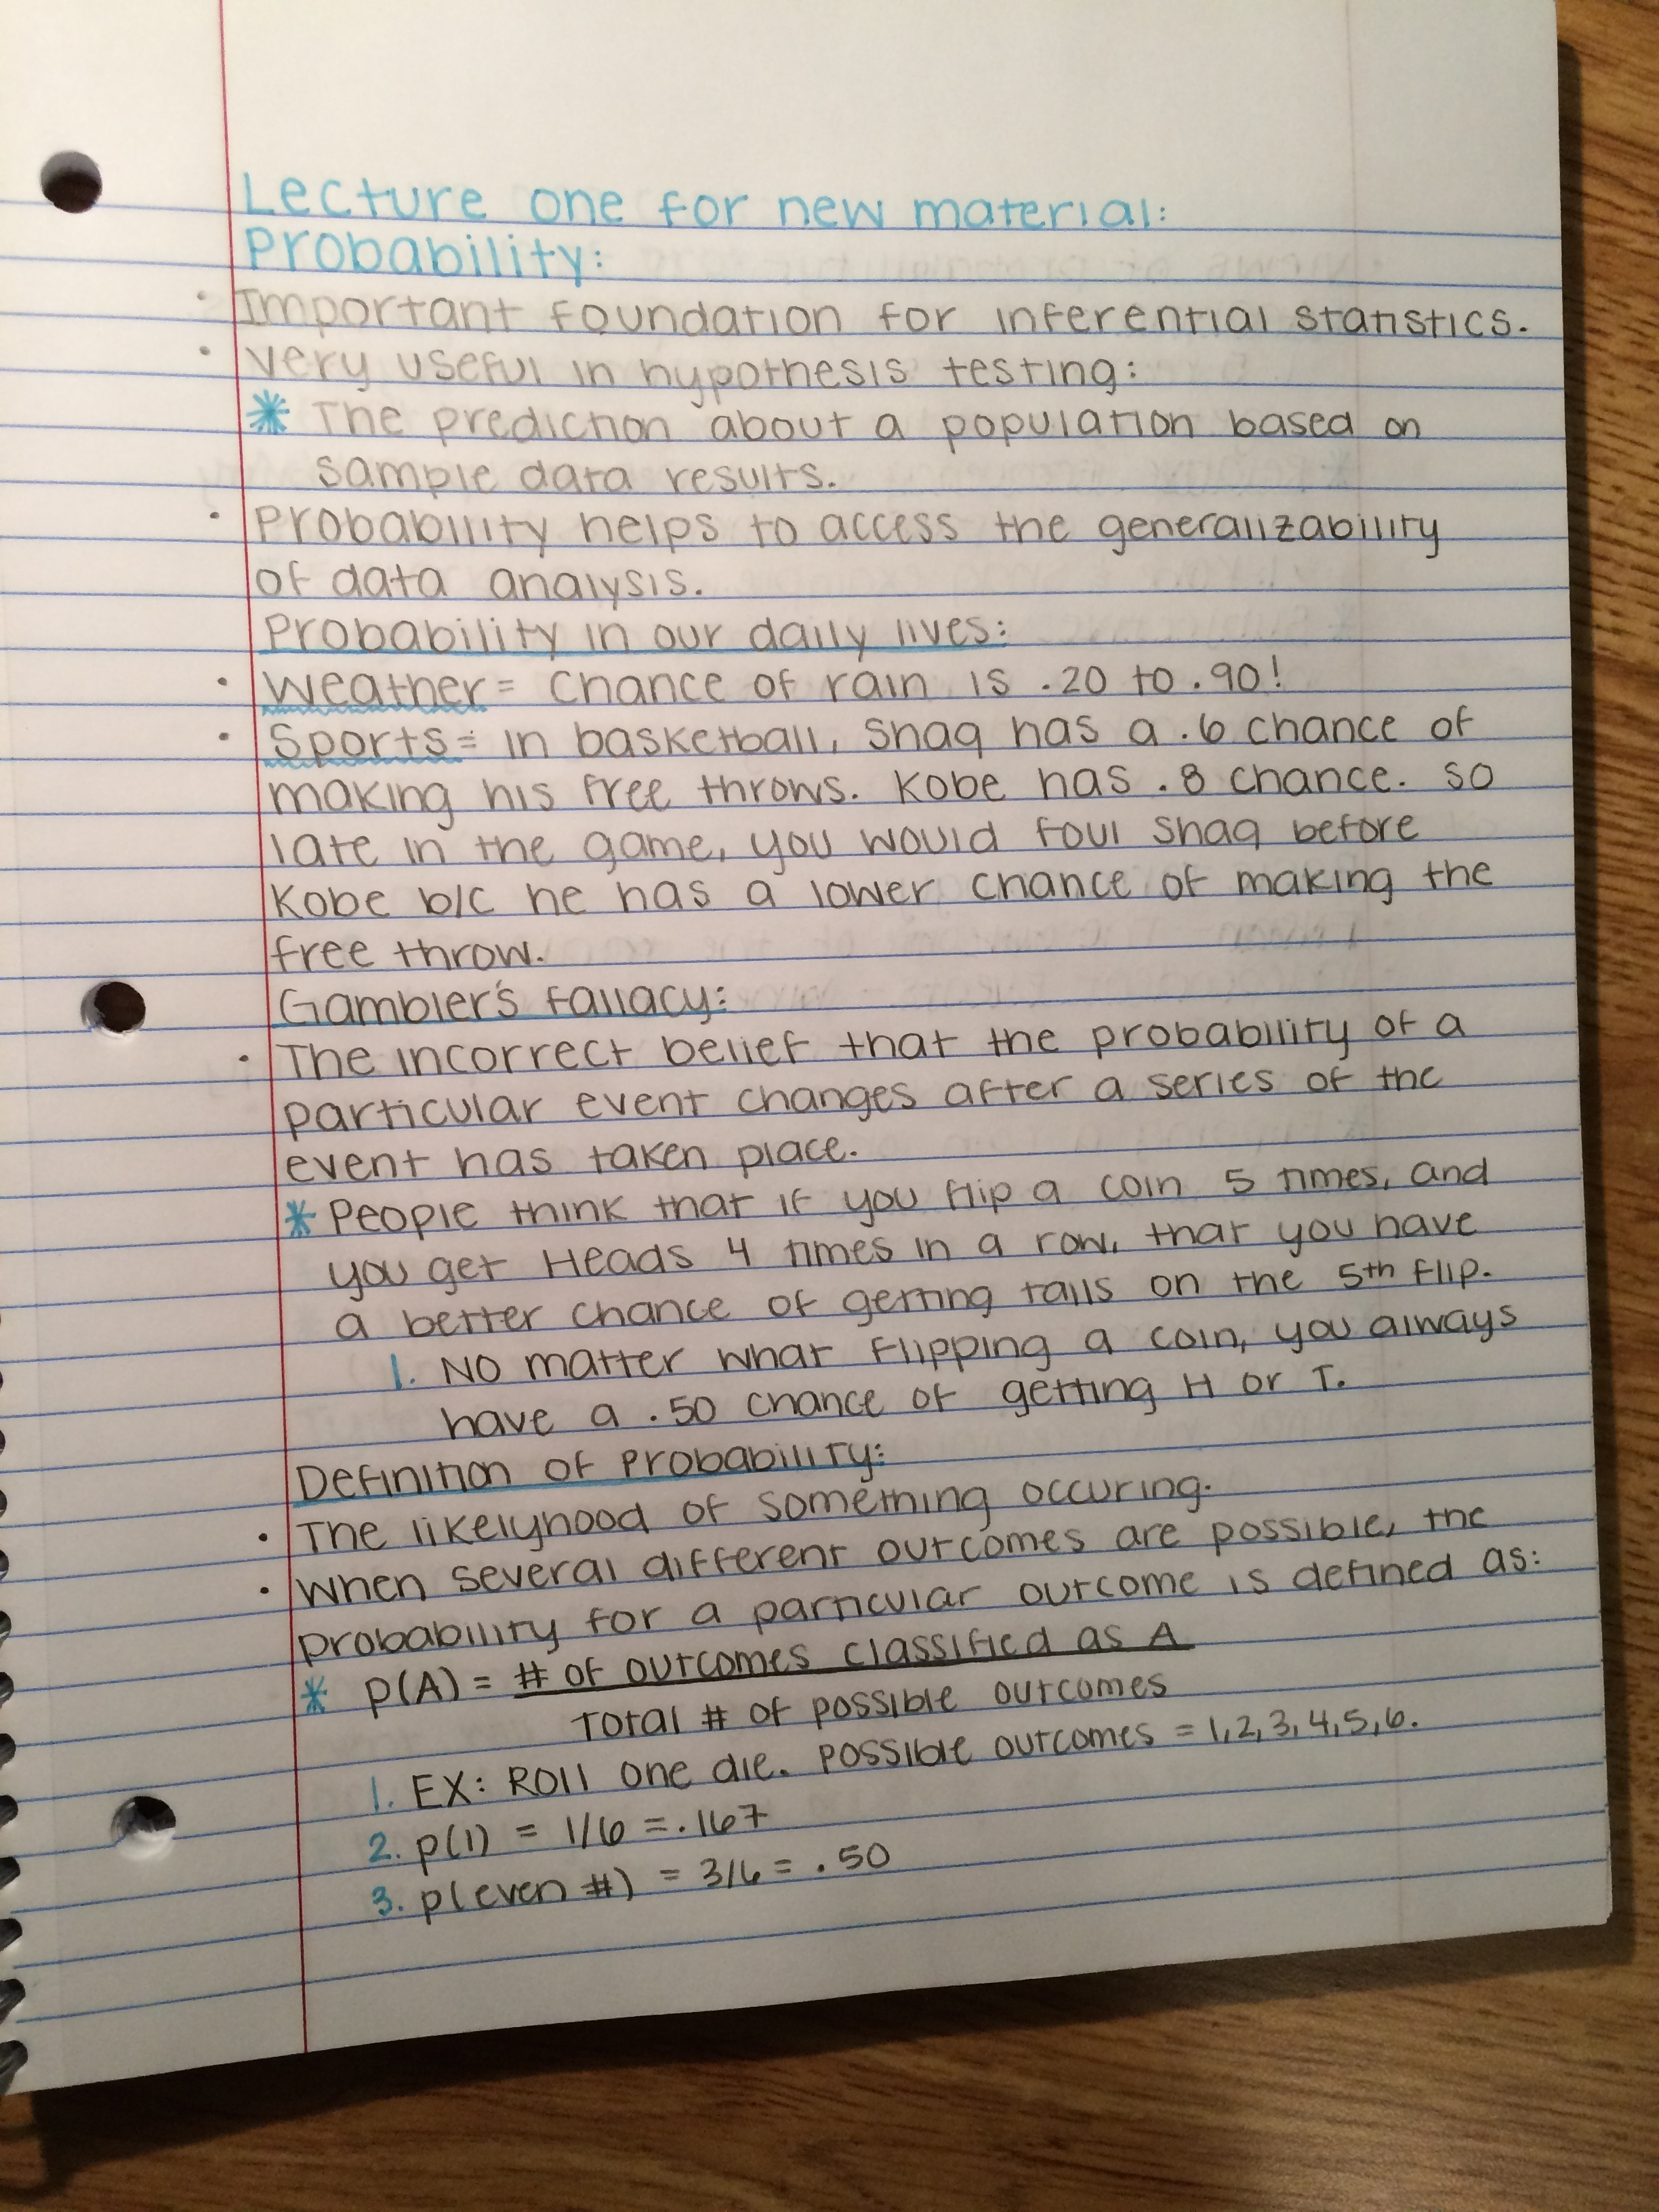 Lecture one for new material:
Probability:
• Important foundation for inferential statistics.
• Very useful in hypothesis testing:
* The prediction about a population based on
sample data results.
• Probability helps to access the generalizability
of data analysis.
Probability in our daily lives:
• Weather = chance of rain is .20 to .90!
• Sports = in basketball, Shaq has a .6 chance of
making his free throws. Kobe has .8 chance. So
late in the game, you would foul Shaq before
Kobe b/c he has a lower chance of making the
free throw.
Gambler's Fallacy:
• The incorrect belief that the probability of a
particular event changes after a series of the
event has taken place.
* People think that if you flip a coin 5 times, and
you get Heads 4 times in a row, that you have
a better chance of getting tails on the 5th flip.
1. No matter what flipping a coin, you always
have a .50 chance of getting H or T.
Definition of Probability:
• The likelyhood of something occuring.
• When several different outcomes are possible, the
probability for a particular outcome is defined as:
* p(A) = # of outcomes classified as A
Total # of possible outcomes
1. EX: Roll one die. Possible outcomes = 1,2,3,4,5,6.
2. p(1) = 1/6 = .167
3. p(even #) = 3/6 = .50